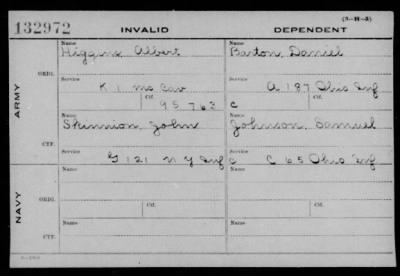 (3-H-3)
132972 INVALID DEPENDENT
Name Name
Higgins Albert Barton, Daniel
ORIG.
Service Service
K 1 Mo Cav A 187 Ohio Inf
Ctf. Ctf.
95762 c
ARMY
Name Name
Skinnion, John Johnson, Samuel
CTF.
Service Service
G 121 N Y Inf c C 65 Ohio Inf
Name Name
ORIG.
Ctf. Ctf.
NAVY
Name Name
CTF.